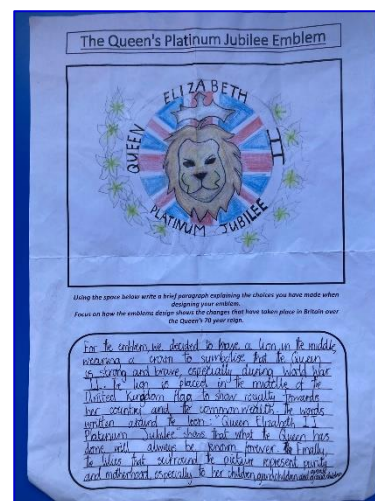 The Queen's Platinum Jubilee Emblem
QUEEN ELIZABETH II
PLATINUM JUBILEE
Using the space below write a brief paragraph explaining the choices you have made when
designing your emblem.
Focus on how the emblems design shows the changes that have taken place in Britain over
the Queen's 70 year reign.
For the emblem, we decided to have a lion in the middle,
wearing a crown to symbolise that the Queen
is strong and brave, especially during World War
II. The lion is placed in the middle of the
United Kingdom flag to show loyalty towards
her country and the commonwealth. The words
written around the lion: "Queen Elizabeth II
Platinum Jubilee shows that what the Queen has
done will always be known forever. Finally,
the lilies that surround the picture represent purity
and motherhood, especially to her children, grandchildren and great grandchildren